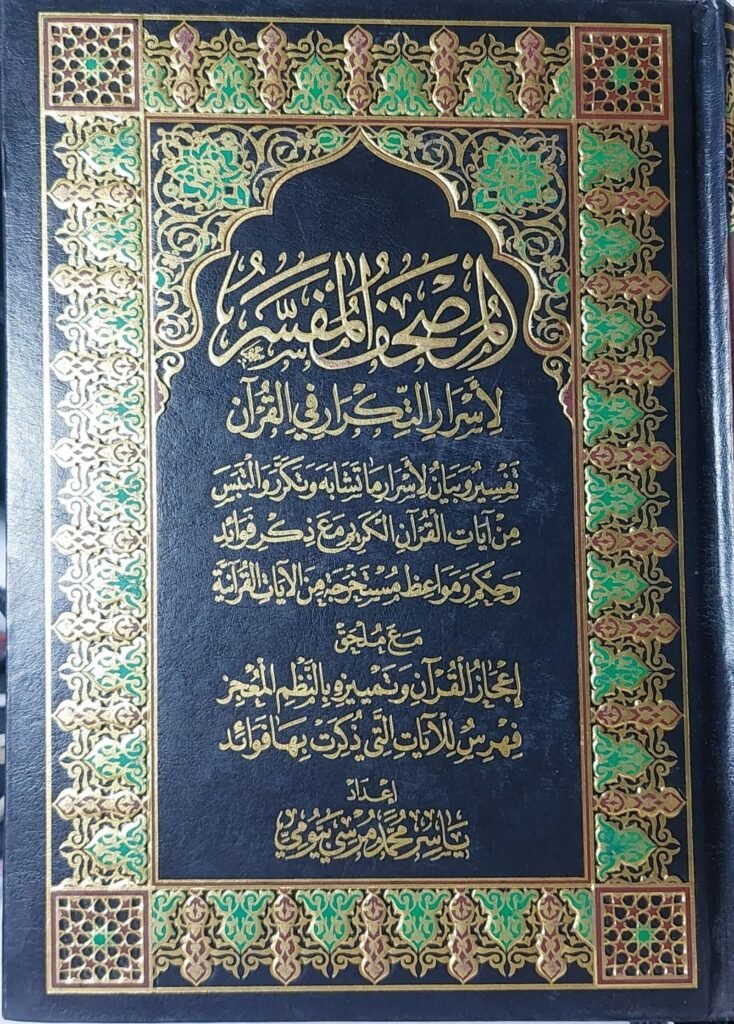 المصحف المفسر
لأسرار التكرار في القرآن
تفسير وبيان لأسرار ما تشابه وتكرر والتبس
من آيات القرآن الكريم مع ذكر فوائد
وحكم ومواعظ مستخرجة من الآيات القرآنية
مع ملحق
إعجاز القرآن وتمييزه بالنظم المعجز
فهرس للآيات التي ذكرت بها فوائد
إعداد
ياسر محمد مرسي بيومي